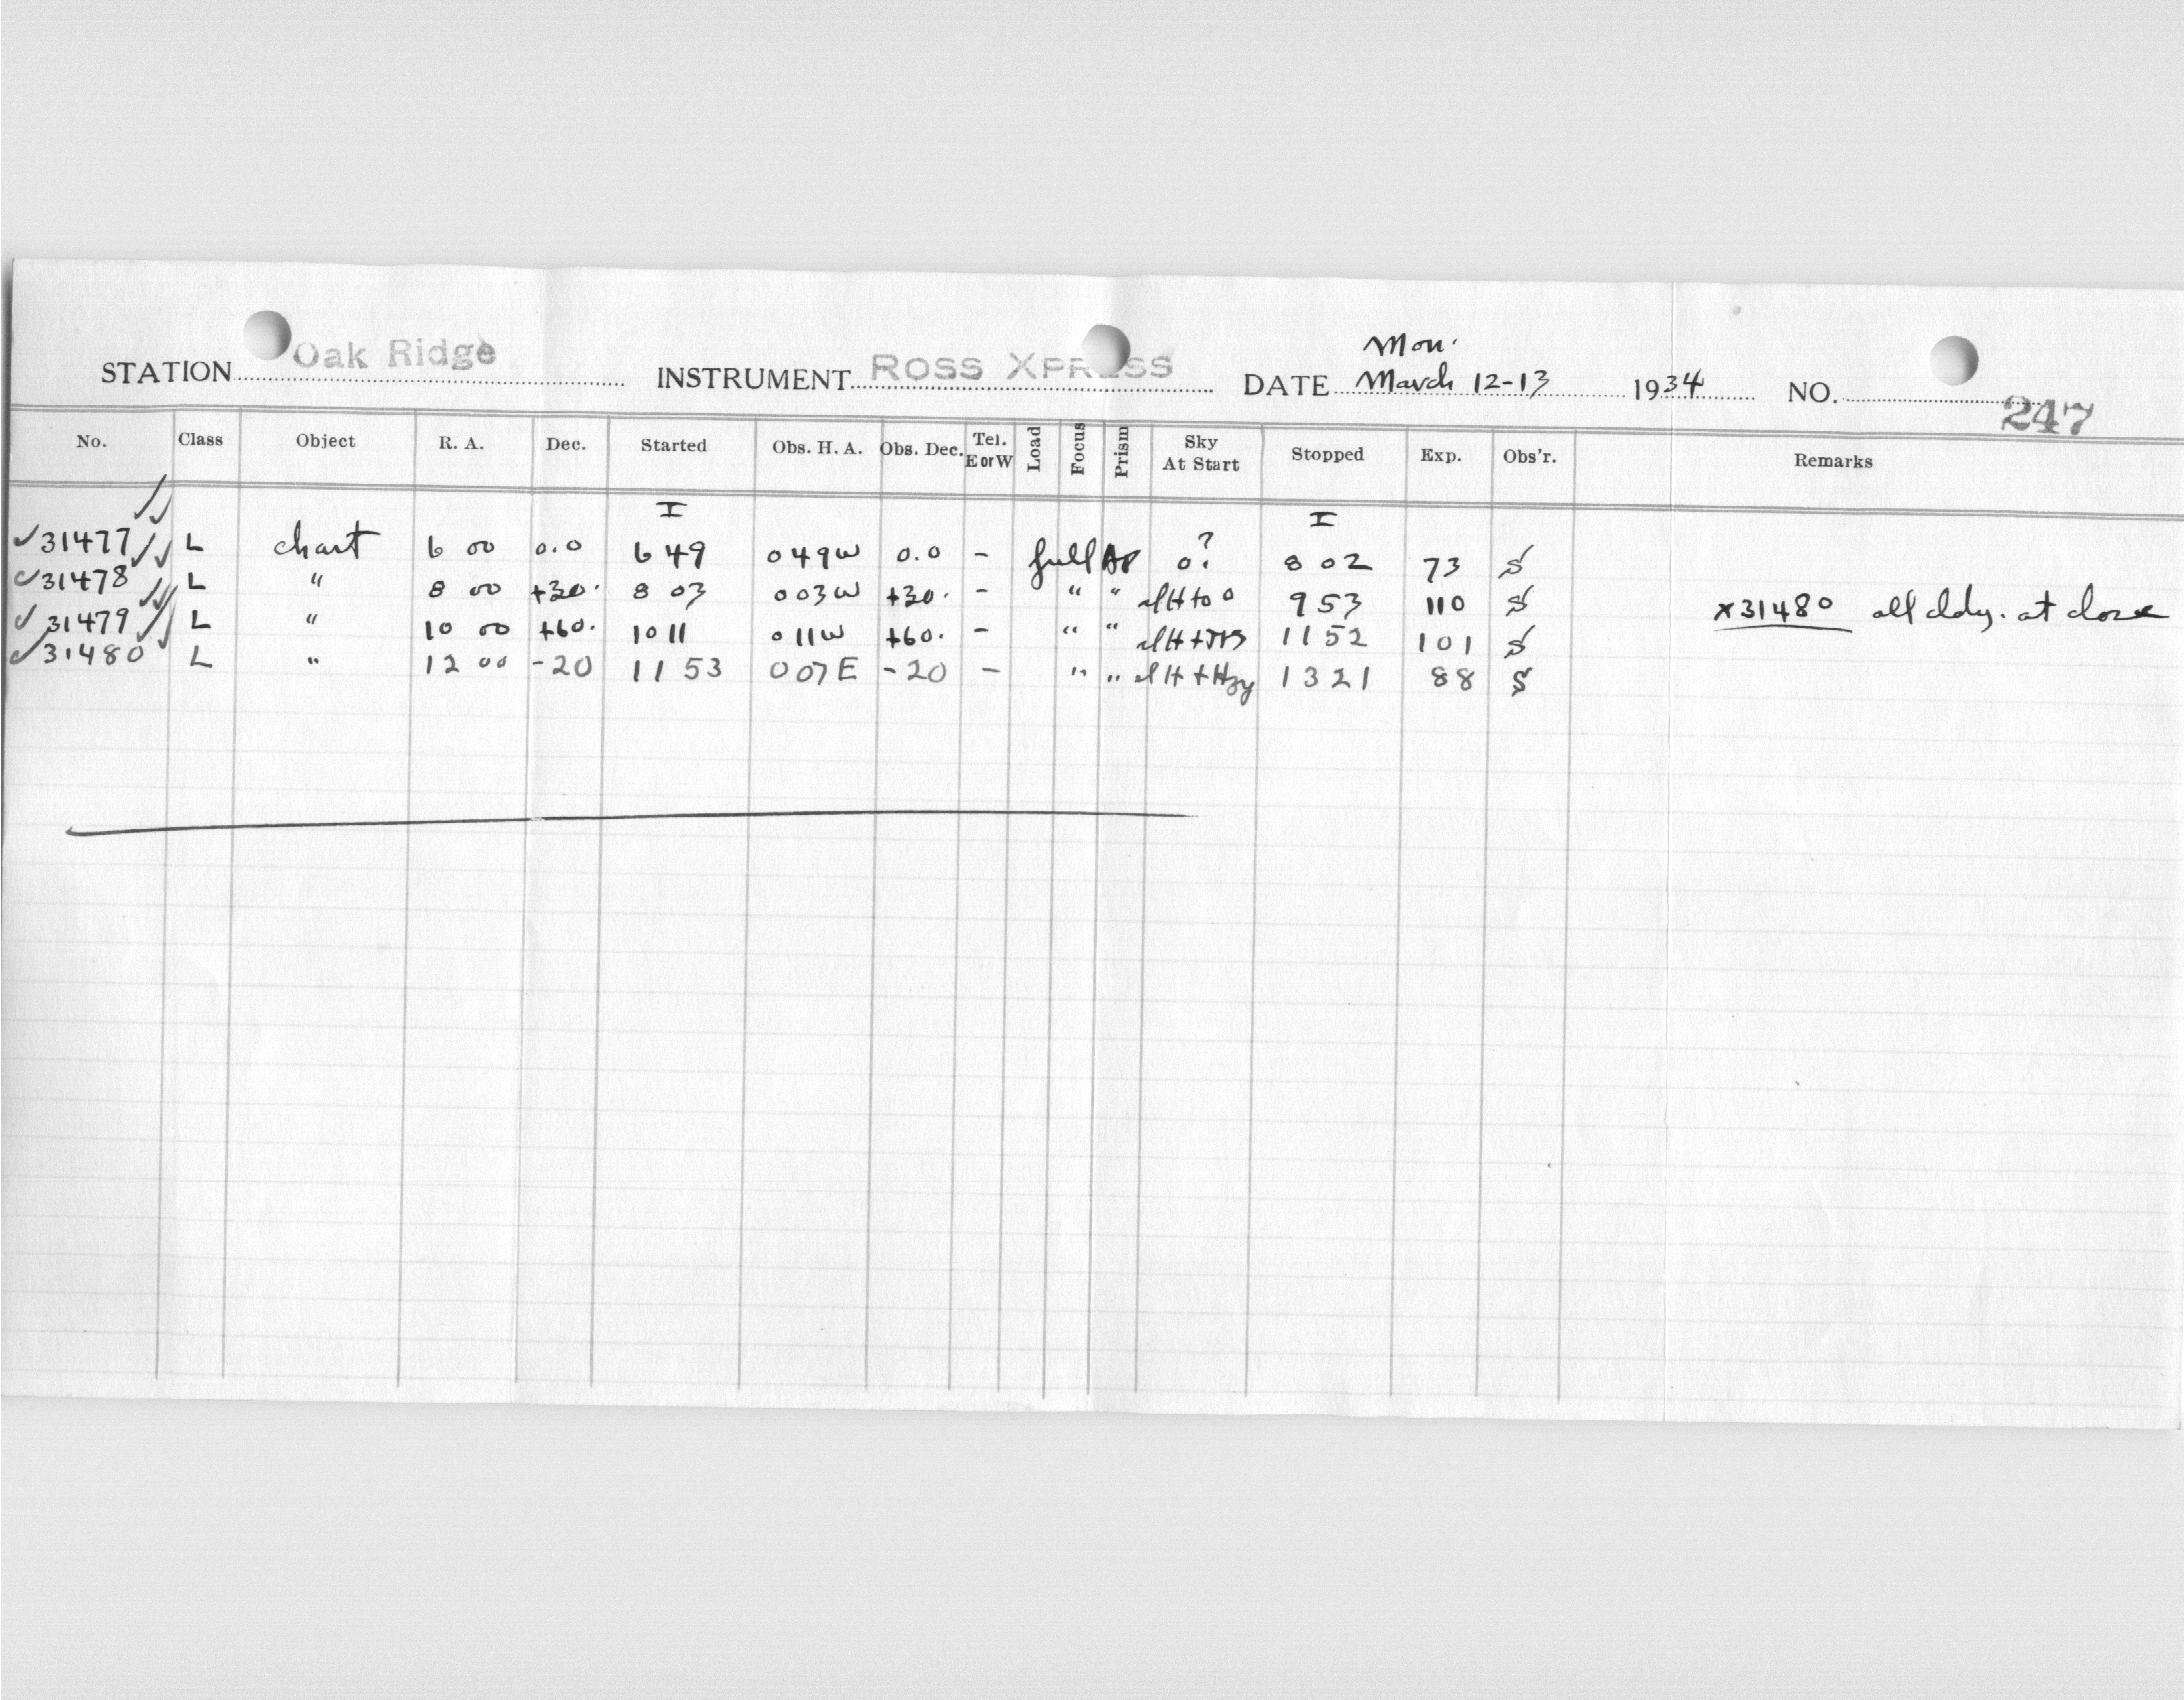 Mon.
STATION Oak Ridge INSTRUMENT ROSS XPRESS DATE March 12-13 1934 NO. 247
No. Class Object R. A. Dec. Started Obs. H. A. Obs. Dec. Tel. E or W Load Focus Prism Sky At Start Stopped Exp. Obs'r. Remarks
I I
31477 L chart 6 00 0.0 6 49 0 49 W 0.0 - full Ap 0? 8 02 73 S
31478 L " 8 00 +30. 8 03 0 03 W +30. - " " to 0 9 53 110 S
31479 L " 10 00 +60. 10 11 0 11 W +60. - " " 11 52 101 S
31480 L " 12 00 -20 11 53 0 07 E -20 - " " + Hzy 13 21 88 S
x31480 all cldy. at close